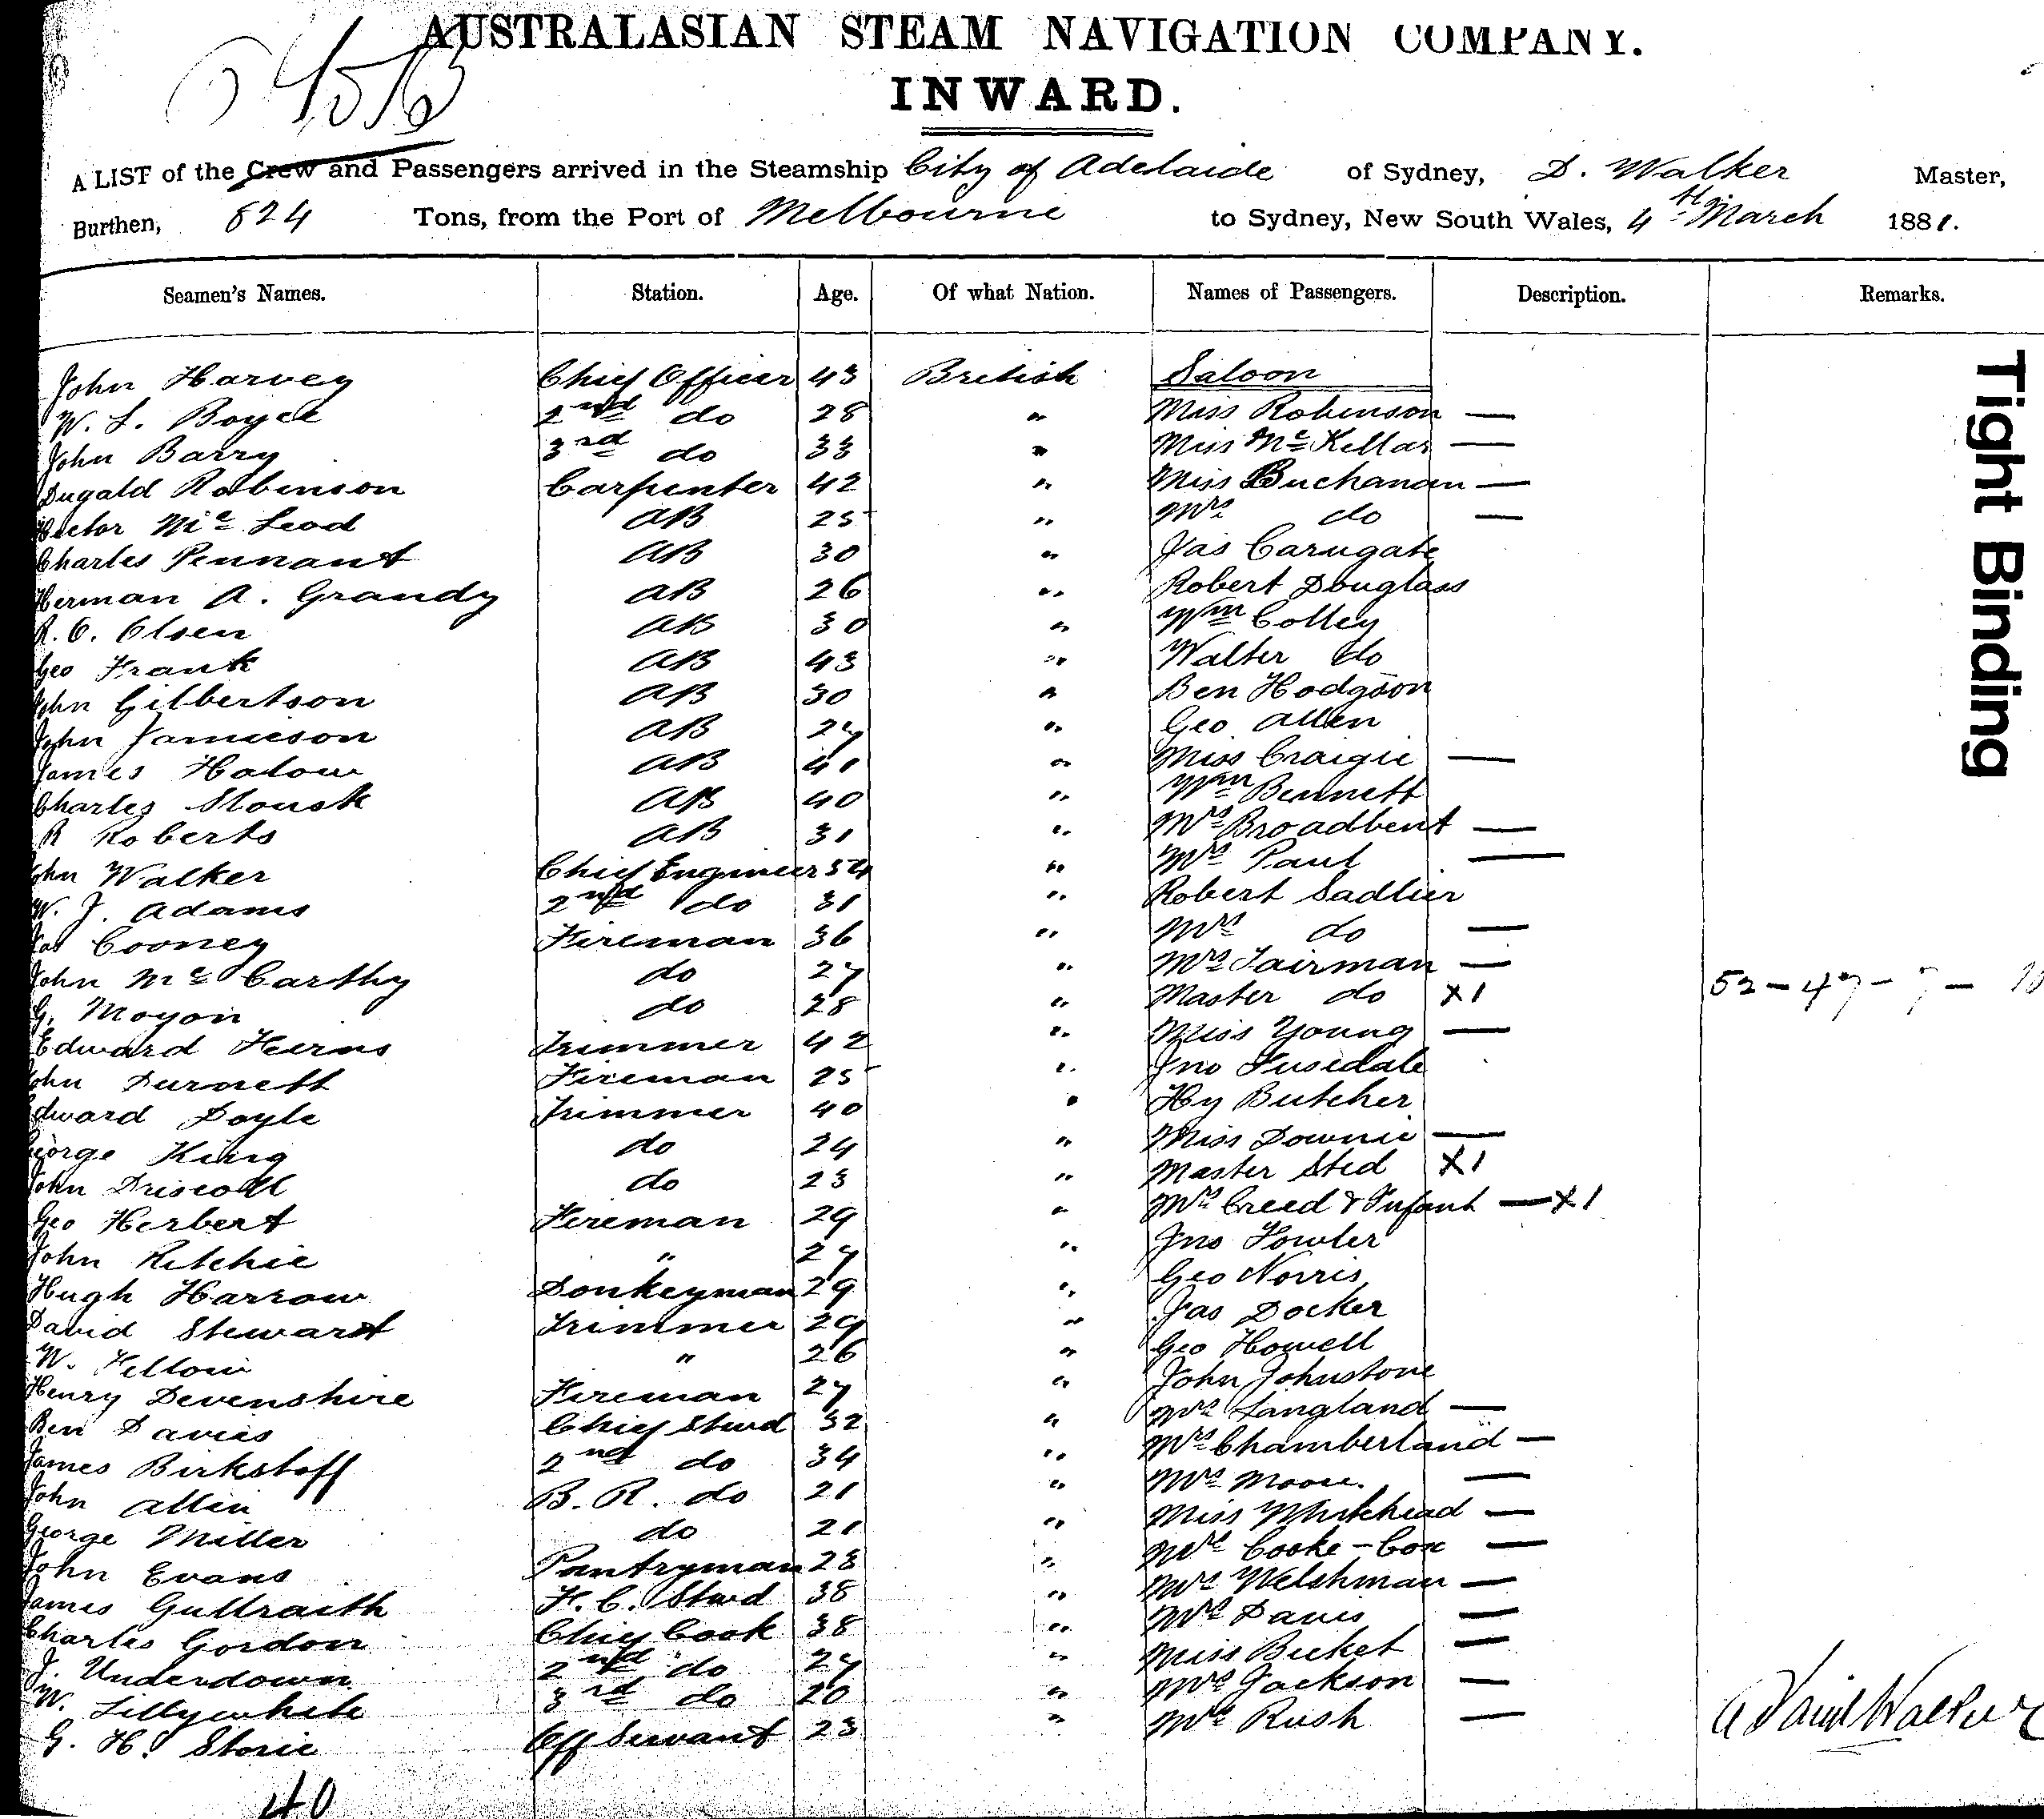 AUSTRALASIAN STEAM NAVIGATION COMPANY.
INWARD.
A LIST of the Crew and Passengers arrived in the Steamship City of Adelaide of Sydney, D. Walker Master,
Burthen, 824 Tons, from the Port of Melbourne to Sydney, New South Wales, 4th March 1881.
Seamen's Names. Station. Age. Of what Nation. Names of Passengers. Description. Remarks.
John Harvey Chief Officer 43 British Saloon
W. L. Boyce 2nd do 28 " Miss Robinson —
John Barry 3rd do 33 " Miss Mc Kellar —
Dugald Robinson Carpenter 42 " Miss Buchanan —
Hector Mc Leod AB 25 " Mrs do —
Charles Pennant AB 30 " Jas Carugate
Herman A. Grandy AB 26 " Robert Douglass
R. O. Olsen AB 30 " Wm Colley
Geo Frank AB 43 " Walter do
John Gilbertson AB 30 " Ben Hodgson
John Jamieson AB 27 " Geo Allen
James Halow AB 41 " Miss Craigie —
Charles AB 40 " Wm Bennett
R Roberts AB 31 " Mrs Broadbent —
John Walker Chief Engineer 54 " Mrs Paul —
W. J. Adams 2nd do 31 " Robert Sadlier
Jas Cooney Fireman 36 " Mrs do —
John Mc Carthy do 27 " Mrs Fairman —
G. Moyon do 28 " Master do X1 52-47-7-
Edward Kerns Trimmer 42 " Miss Young —
John Durnett Fireman 25 " Jno Fusedale
Edward Doyle Trimmer 40 " Hy Butcher
George King do 24 " Miss Downie —
John Driscoll do 23 " Master Sted X1
Geo Herbert Fireman 29 " Mrs Creed & Infant — X1
John Ritchie " 27 " Jno Fowler
Hugh Harrow Donkeyman 29 " Geo Norris
David Stewart Trimmer 29 " Jas Docker
W. Fellow " 26 " Geo Howell
Henry Devenshire Fireman 27 " John Johnstone
Ben Davies Chief Stwd 32 " Mrs Langland —
James Birkstoff 2nd do 34 " Mrs Chamberland —
John Allen B. R. do 21 " Mrs Moore. —
George Miller do 21 " Miss Whitehead —
John Evans Pantryman 28 " Mrs Cooke-Cox —
James Gullraith F. C. Stwd 38 " Mrs Welshman —
Charles Gordon Chief Cook 38 " Mrs Davis —
J. Underdown 2nd do 27 " Miss Bicket —
W. Lillywhite 3rd do 20 " Mrs Jackson —
G. H. Storie Off Servant 23 " Mrs Rush —
David Walker
40
Tight Binding